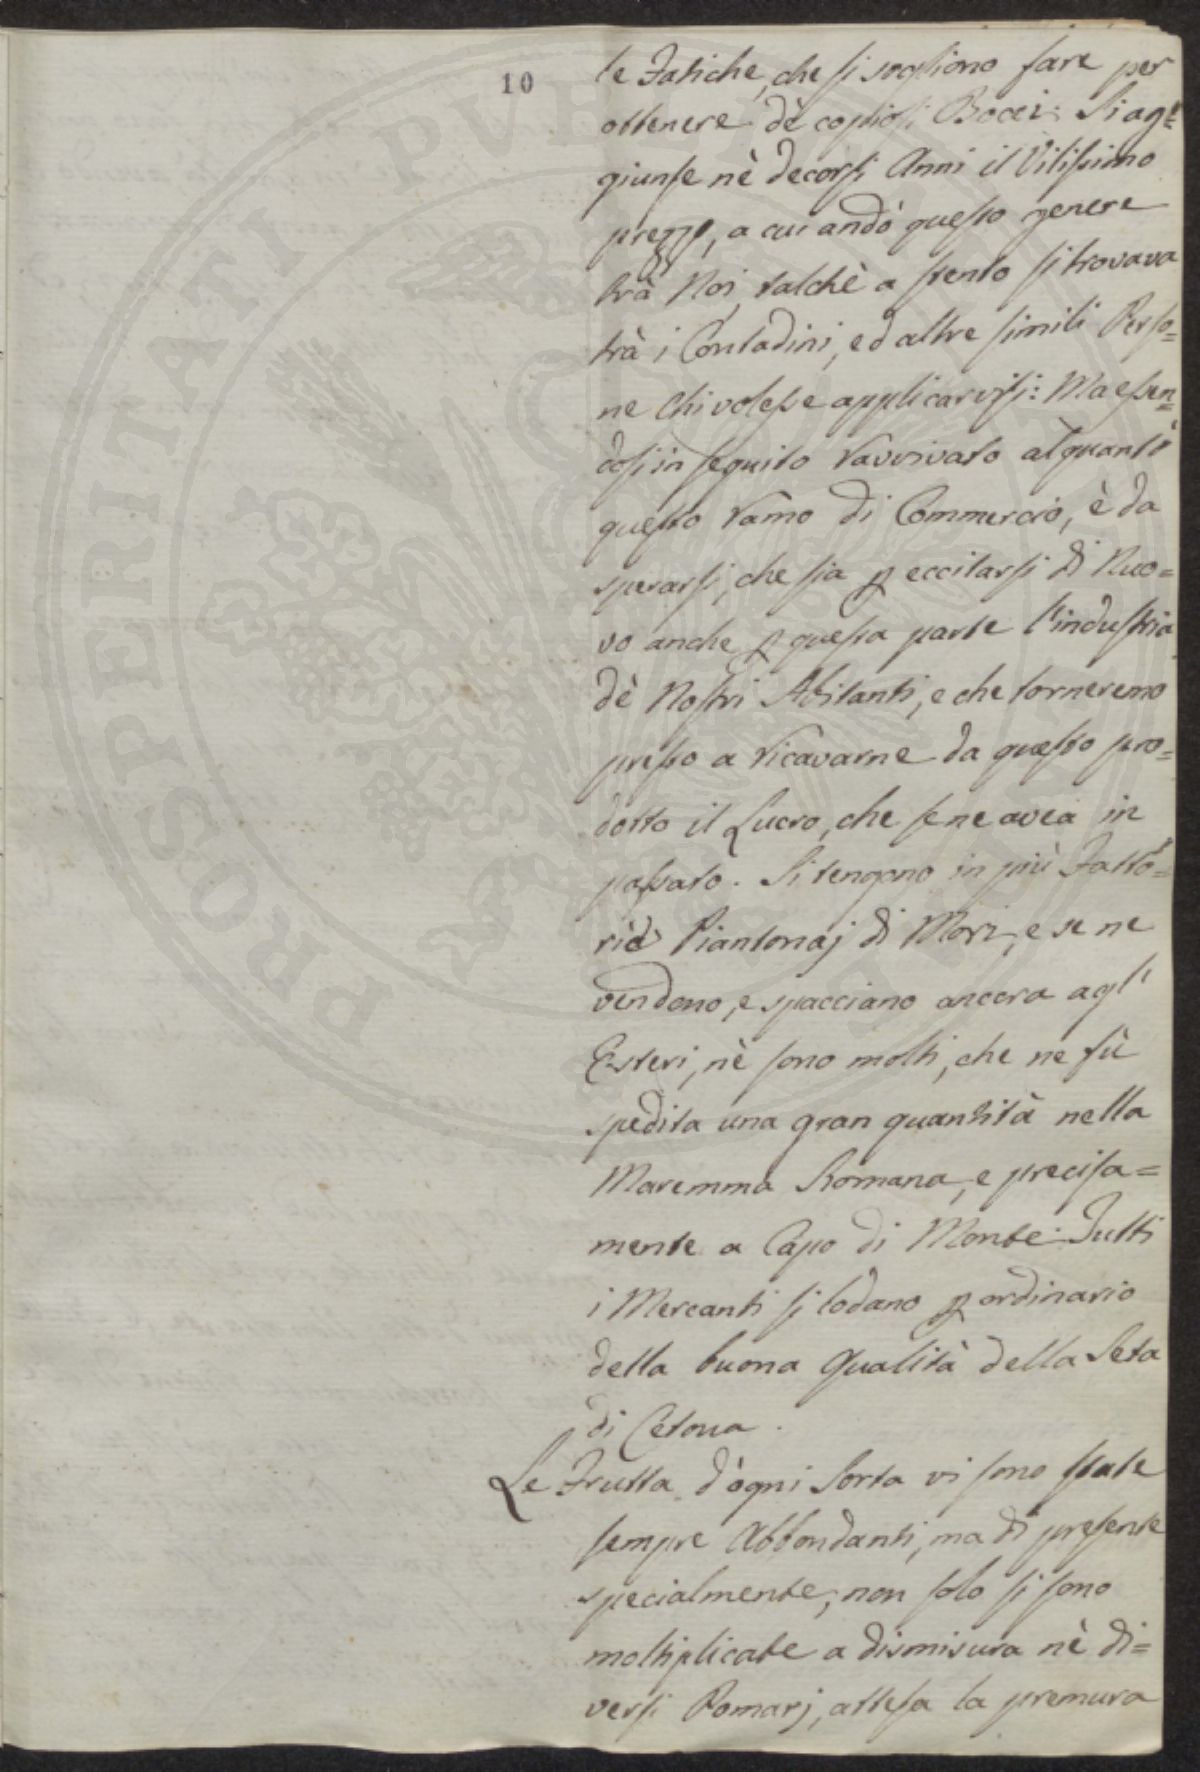 10
le Fatiche, che si sogliono fare per
ottenere dè copiosi Bocci. Si ag=
giunse nè decorsi Anni il Vilissimo
prezzo, a cui andò questo genere
trà Noi, talchè a stento si trovava
trà i Contadini, ed altre simili Perso=
ne chi volesse applicarvisi: Ma essen=
dosi in seguito ravvivato alquanto
questo ramo di Commercio, è da
sperarsi, che sia p eccitarsi di Nuo=
vo anche p questa parte l'industria
dè Nostri Abitanti, e che torneremo
presto a ricavarne da questo pro=
dotto il Lucro, che se ne avea in
passato. Si tengono in più Fatto=
rie Piantonaj di Mori, e se ne
vendono, e spacciano ancora agl'
Esteri, nè sono molti, che ne fù
spedita una gran quantità nella
Maremma Romana, e precisa=
mente a Capo di Monte. Tutti
i Mercanti si lodano p ordinario
della buona Qualità della Seta
di Cetona.
Le Frutta d'ogni Sorta vi sono state
sempre Abbondanti, ma di presente
specialmente, non solo si sono
moltiplicate a dismisura nè di=
versi Pomarj, attesa la premura
PROSPERITATI PVBLICAE